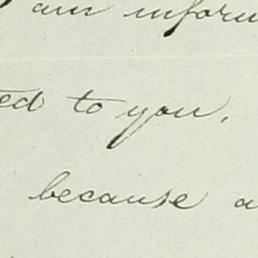 am inform
ed to you.
because a